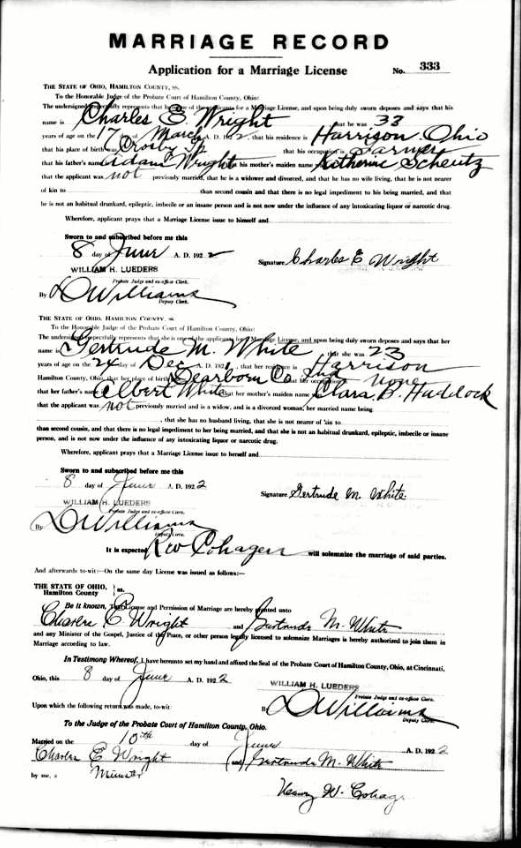 MARRIAGE RECORD
Application for a Marriage License No. 333
THE STATE OF OHIO, HAMILTON COUNTY, ss.
To the Honorable Judge of the Probate Court of Hamilton County, Ohio:
The undersigned respectfully represents that he is one of the applicants for a Marriage License, and upon being duly sworn deposes and says that his
name is Charles E Wright that he was 33
years of age on the 17 day of March A. D. 192 2, that his residence is Harrison Ohio
that his place of birth was Crosby Tp that his occupation is Farmer
that his father's name Adam Wright his mother's maiden name Katherine Scheutz
that the applicant was not previously married, that he is a widower and divorced, and that he has no wife living, that he is not nearer
of kin to than second cousin and that there is no legal impediment to his being married, and that
he is not an habitual drunkard, epileptic, imbecile or an insane person and is not now under the influence of any intoxicating liquor or narcotic drug.
Wherefore, applicant prays that a Marriage License issue to himself and
Sworn to and subscribed before me this
8 day of June A. D. 192 2
Signature Charles E Wright
WILLIAM H. LUEDERS
Probate Judge and ex-office Clerk.
By D Williams
Deputy Clerk.
THE STATE OF OHIO, HAMILTON COUNTY, ss
To the Honorable Judge of the Probate Court of Hamilton County, Ohio:
The undersigned respectfully represents that she is one of the applicants for a Marriage License, and upon being duly sworn deposes and says that her
name is Gertrude M. White that she was 23
years of age on the 24 day of Dec A. D. 192 1, that her residence is Harrison
Hamilton County, Ohio, that her place of birth is Dearborn Co that her occupation none
that her father's name Albert White that her mother's maiden name Clara B. Haddock
that the applicant was not previously married and is a widow, and is a divorced woman, her married name being
, that she has no husband living, that she is not nearer of kin to
than second cousin, and that there is no legal impediment to her being married, and that she is not an habitual drunkard, epileptic, imbecile or insane
person, and is not now under the influence of any intoxicating liquor or narcotic drug.
Wherefore, applicant prays that a Marriage License issue to herself and
Sworn to and subscribed before me this
8 day of June A. D. 192 2
Signature Gertrude M White
WILLIAM H. LUEDERS
Probate Judge and ex-office Clerk.
By D Williams
Deputy Clerk.
It is expected Rev Cohagen will solemnize the marriage of said parties.
And afterwards to-wit:—On the same day License was issued as follows:—
THE STATE OF OHIO,
Hamilton County } ss.
Be it known, That License and Permission of Marriage are hereby granted unto
Charles E. Wright and Gertrude M. White
and any Minister of the Gospel, Justice of the Peace, or other person legally licensed to solemnize Marriages is hereby authorized to join them in
Marriage according to law.
In Testimony Whereof, I have hereunto set my hand and affixed the Seal of the Probate Court of Hamilton County, Ohio, at Cincinnati,
Ohio, this 8 day of June A. D. 192 2
WILLIAM H. LUEDERS
Probate Judge and ex-office Clerk.
Upon which the following return was made, to-wit:
By D Williams
Deputy Clerk
To the Judge of the Probate Court of Hamilton County, Ohio.
Married on the 10th day of June A. D. 192 2
Charles E Wright and Gertrude M. White
by me, a Minister
Henry W. Cohagen